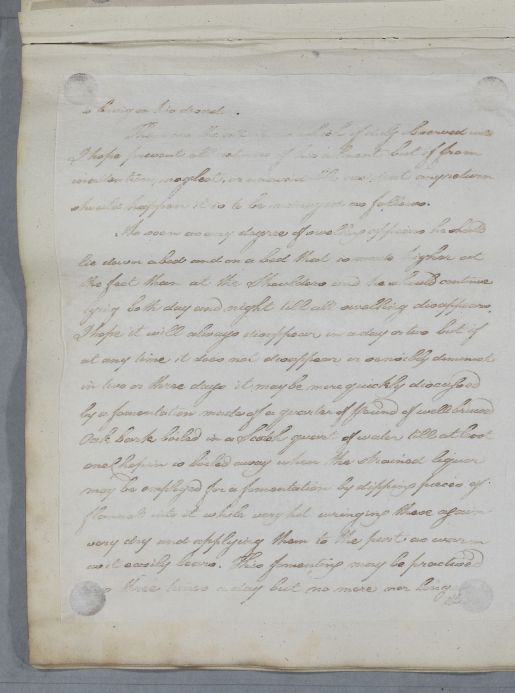 These are the
I hope prevent all returns of his ailments but if from
inattention, neglect, or any return
should happen it is to be managed as follows.
As soon as any degree of swelling appears he shall
lie down abed and on a bed that is made higher at
the feet than at the Shoulders and he should continue
lying both day and night till all swelling disappears.
I hope it will always disappear in a day or two but if
at any time it does not disappear or sensibly diminish
in two or three days it may be more quickly discussed
by a fomentation made of a quarter of a pound of well bruised
Oak bark boiled in a Scotch quart of water till at least
one Chopin is boiled away when the strained liquor
may be employed for a fomentation by dipping pieces of
flannel into it while very hot wringing these again
very dry and applying them to the part as warm
as it easily bears. This fomenting may be practised
three times a day but no more nor long